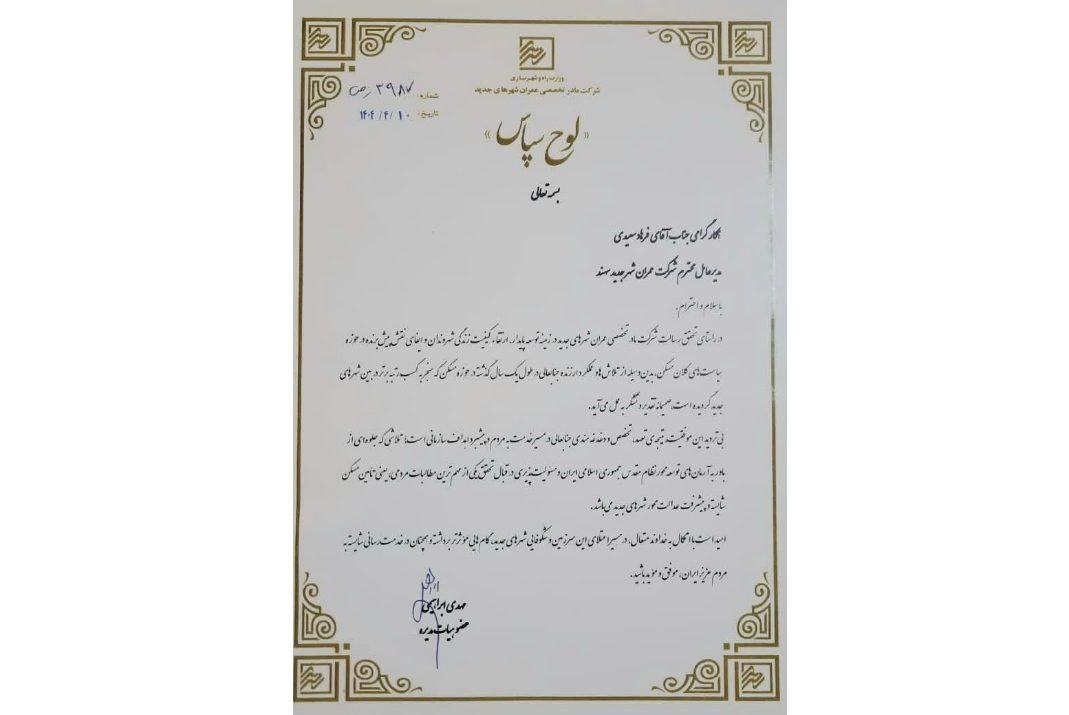 وزارت راه و شهرسازی
شرکت مادر تخصصی عمران شهرهای جدید
شماره: ۳۹۸۷ رص
تاریخ: ۱۴۰۴/۴/۱۰
« لوح سپاس »
بسمه تعالی
همکار گرامی جناب آقای فرهاد سعیدی
مدیرعامل محترم شرکت عمران شهر جدید سهند
با سلام و احترام،
در راستای تحقق رسالت شرکت مادر تخصصی عمران شهرهای جدید در زمینه توسعه پایدار، ارتقاء کیفیت زندگی شهروندان و ایفای نقش پیش برنده در حوزه
سیاست‌های کلان مسکن، بدین وسیله از تلاش‌ها و عملکرد ارزنده جنابعالی در طول یک سال گذشته در حوزه مسکن که منجر به کسب رتبه برتر در بین شهرهای
جدید گردیده است، صمیمانه تقدیر و تشکر به عمل می آید.
بی تردید این موفقیت، نتیجه‌ی تعهد، تخصص و دغدغه مندی جنابعالی در مسیر خدمت به مردم و پیشبرد اهداف سازمانی است؛ تلاشی که جلوه‌ای از
باور به آرمان‌های توسعه محور نظام مقدس جمهوری اسلامی ایران و مسئولیت پذیری در قبال تحقق یکی از مهم ترین مطالبات مردمی، یعنی تامین مسکن
شایسته و پیشرفت عدالت محور شهرهای جدید می باشد.
امید است با اتکال به خداوند متعال، در مسیر اعتلای این سرزمین و شکوفایی شهرهای جدید، گام هایی مؤثرتر برداشته و همچنان در خدمت رسانی شایسته به
مردم عزیز ایران، موفق و مؤید باشید.
مهدی ابراهیمی
عضو هیات مدیره